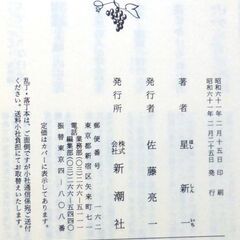 昭和六十一年二月十五日 印刷
昭和六十一年二月二十五日 発行
著者 星新一
ほし しん いち
発行者 佐藤亮一
発行所 株式会社 新潮社
郵便番号 一六二
東京都新宿区矢来町七一
電話 業務部(〇三)二六六―五一一一
編集部(〇三)二六六―五四四〇
振替東京四―八〇八番
定価はカバーに表示してあります。
乱丁・落丁本は、ご面倒ですが小社通信係宛ご送付
ください。送料小社負担にてお取替えいたします。